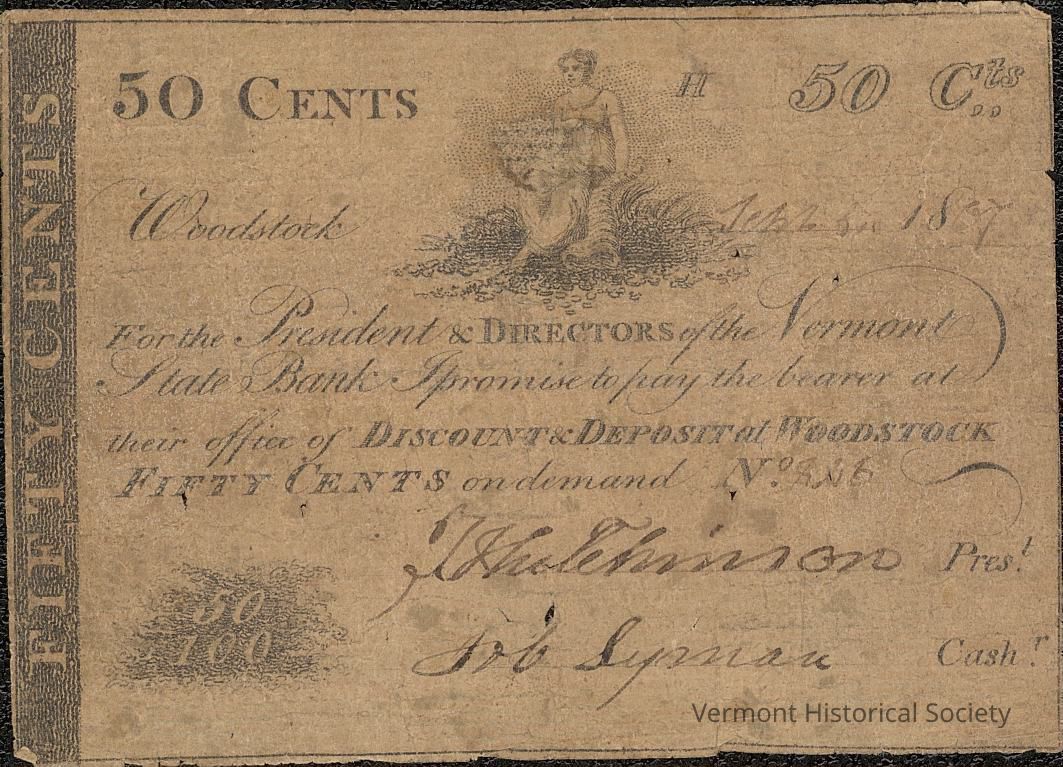 FIFTY CENTS
50 CENTS H 50 Cts
Woodstock 1807
For the President & DIRECTORS of the Vermont
State Bank I promise to pay the bearer at
their office of DISCOUNT & DEPOSIT at WOODSTOCK
FIFTY CENTS on demand No.
T Hutchinson Prest.
50
100
Job Lyman Cashr.
Vermont Historical Society